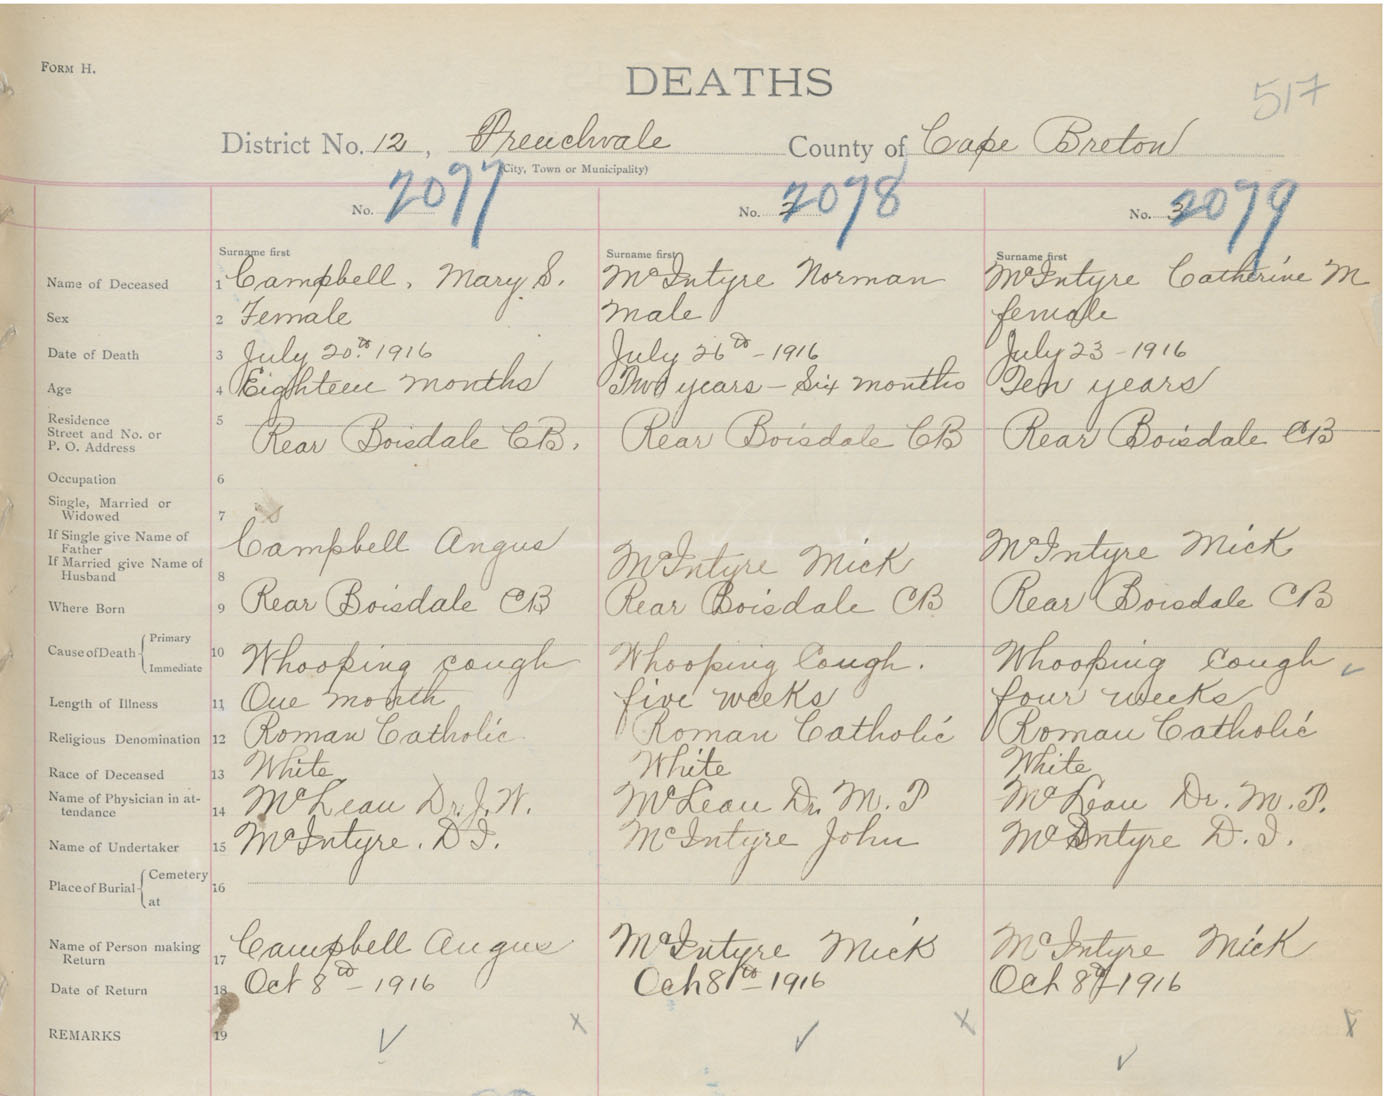 FORM H.
DEATHS
517
District No. 12, Frenchvale County of Cape Breton
(City, Town or Municipality)
No. 2097 No. 2 2098 No. 3 2099
Surname first Surname first Surname first
Name of Deceased 1 Campbell, Mary S. McIntyre Norman McIntyre Catherine M
Sex 2 Female Male female
Date of Death 3 July 20th 1916 July 26th - 1916 July 23 - 1916
Age 4 Eighteen months Two years - Six months Ten years
Residence
Street and No. or
P. O. Address 5 Rear Boisdale CB. Rear Boisdale CB Rear Boisdale CB
Occupation 6
Single, Married or
Widowed 7 S
If Single give Name of
Father Campbell Angus McIntyre Mick McIntyre Mick
If Married give Name of
Husband 8
Where Born 9 Rear Boisdale CB Rear Boisdale CB Rear Boisdale CB
Cause of Death Primary
Immediate 10 Whooping cough Whooping Cough. Whooping Cough
Length of Illness 11 One month five weeks four weeks
Religious Denomination 12 Roman Catholic Roman Catholic Roman Catholic
Race of Deceased 13 White White White
Name of Physician in at-
tendance 14 McLean Dr. J. W. McLean Dr. M. P McLean Dr. M. P.
Name of Undertaker 15 McIntyre. D J. McIntyre John McIntyre D. J.
Place of Burial Cemetery
at 16
Name of Person making
Return 17 Campbell Angus McIntyre Mick McIntyre Mick
Date of Return 18 Oct 8th - 1916 Oct 8th - 1916 Oct 8th 1916
REMARKS 19